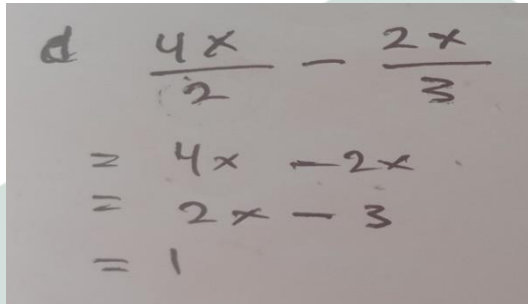 d 4x/2 - 2x/3
= 4x - 2x
= 2x - 3
= 1